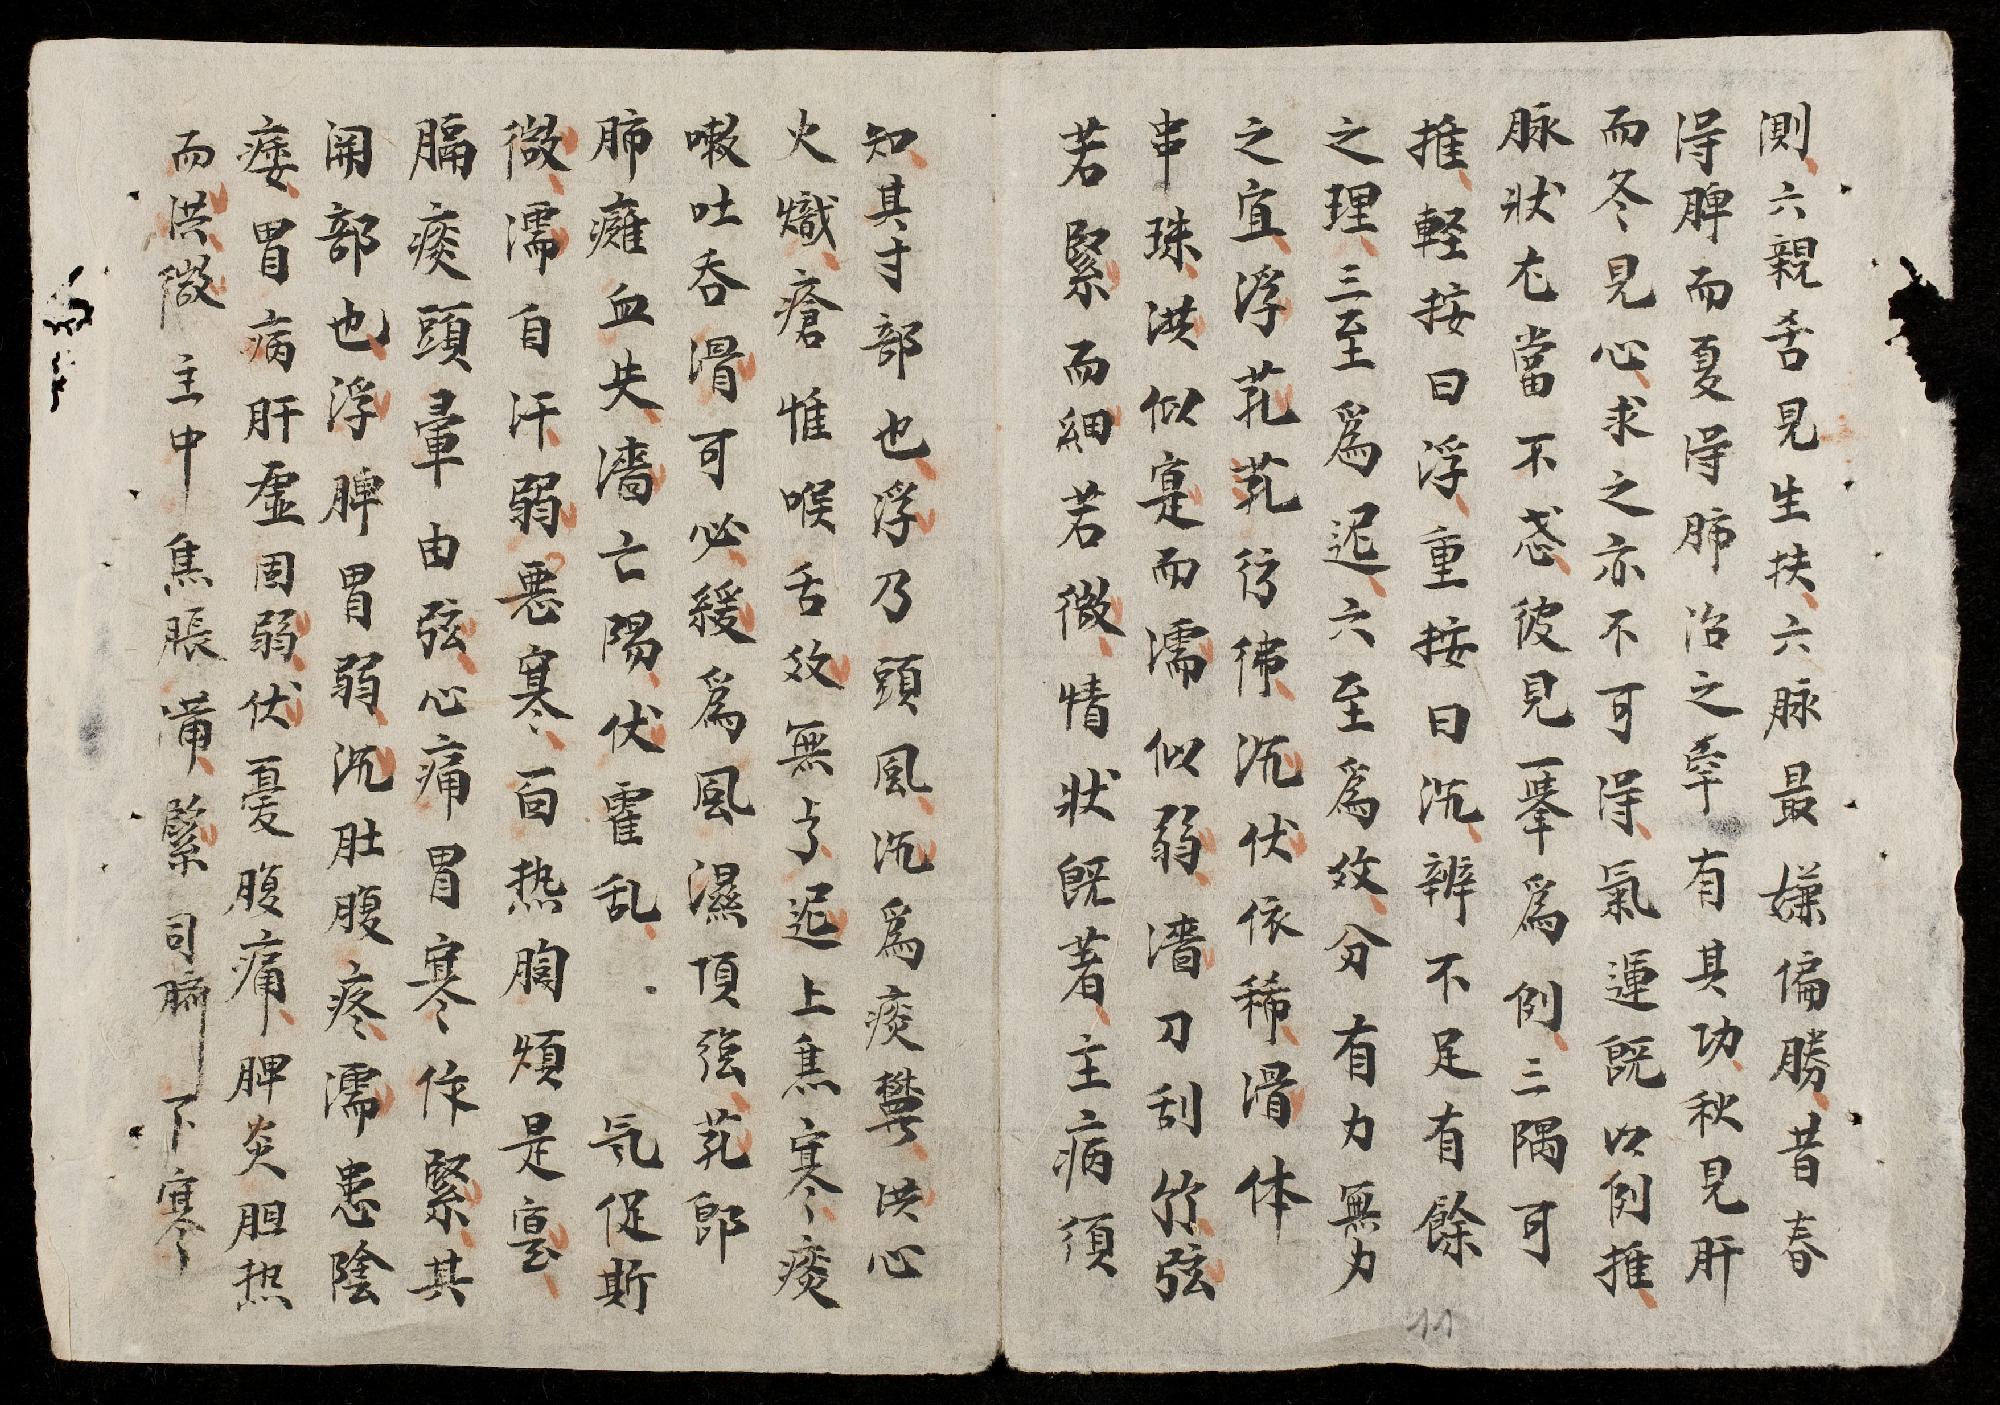 測六親吝見生扶六脉最嫌偏勝昔春
得脾而夏得肺治之牽有其功秋見肝
而冬見心求之亦不可得氣運既以例推
脉狀尤當不忒彼見一擧爲例三隅可
推輕按曰浮重按曰沉辨不足有餘
之理三至爲迟六至爲效分有力無力
之宜浮芤芤彷彿沉伏依稀滑体
串珠洪似寔而濡似弱濇刀刮竹弦
若緊而細若微情狀既著主病須
知其寸部也浮乃頭風沉爲痰鬱洪心
火熾瘡惟喉舌效無迟上焦寒痰
嗽吐吞滑可必緩爲風濕頂強芤郎
肺癰血失濇亡陽伏霍乱氕促斯
微濡自汗弱悪寒百热胸煩是寔
膈痰頭暈由弦心痛胃寒作緊其
関部也浮脾胃弱沉肚腹疼濡患陰
痿胃病肝虚固弱伏憂腹痛脾炎胆热
而洪微主中焦脹滿緊司臍下寒
11